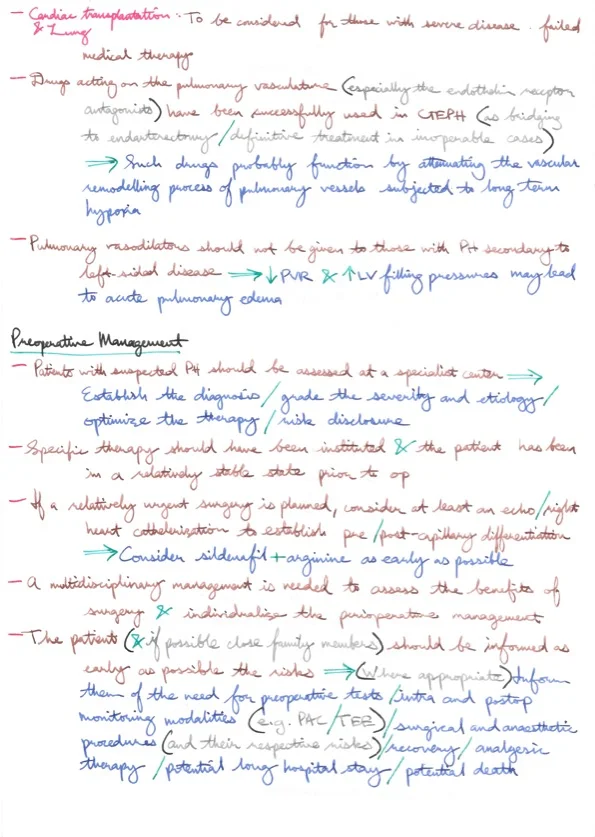 - Cardiac transplantation: To be considered for those with severe disease. failed
& Lung
medical therapy
- Drugs acting on the pulmonary vasculature (especially the endothelin receptor
antagonists) have been successfully used in CTEPH (as bridging
to endarterectomy/definitive treatment in inoperable cases)
⇒ Such drugs probably function by attenuating the vascular
remodelling process of pulmonary vessels subjected to long term
hypoxia
- Pulmonary vasodilators should not be given to those with PH secondary to
left-sided disease ⇒ ↓PVR & ↑LV filling pressures may lead
to acute pulmonary edema
Preoperative Management
- Patients with suspected PH should be assessed at a specialist center ⇒
Establish the diagnosis/grade the severity and etiology/
optimize the therapy/risk disclosure
- Specific therapy should have been instituted & the patient has been
in a relatively stable state prior to op
- If a relatively urgent surgery is planned, consider at least an echo/right
heart catheterization to establish pre/post-capillary differentiation
⇒ Consider sildenafil + arginine as early as possible
- A multidisciplinary management is needed to assess the benefits of
surgery & individualize the perioperative management
- The patient (& if possible close family members) should be informed as
early as possible the risks ⇒ (Where appropriate) Inform
them of the need for preoperative tests/intra and postop
monitoring modalities (e.g. PAC/TEE)/surgical and anaesthetic
procedures (and their respective risks)/recovery/analgesic
therapy/potential long hospital stay/potential death